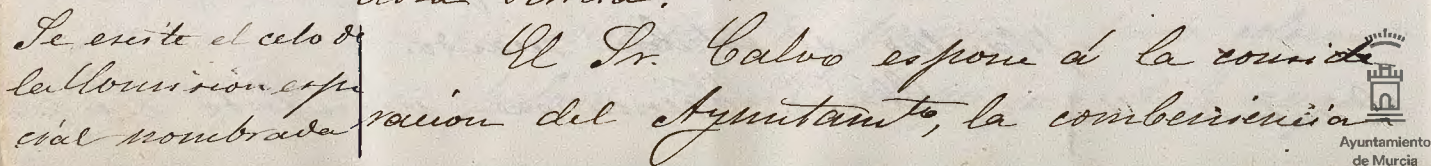 Se exsite el celo de
la Comision espe
cial nombrada
El Sr. Calvo espone á la conside
racion del Ayuntamto, la combeniencia
Ayuntamiento
de Murcia